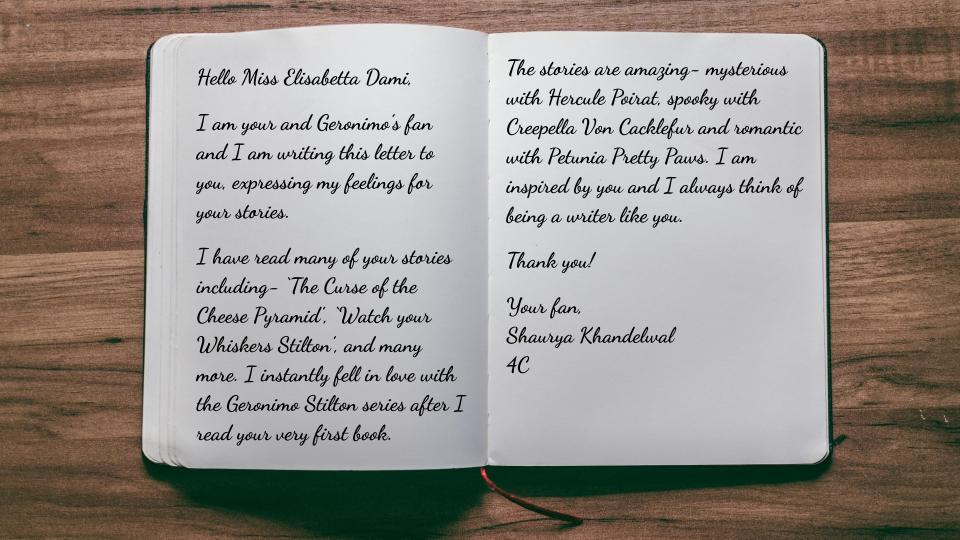 Hello Miss Elisabetta Dami,
I am your and Geronimo's fan
and I am writing this letter to
you, expressing my feelings for
your stories.
I have read many of your stories
including- 'The Curse of the
Cheese Pyramid', 'Watch your
Whiskers Stilton', and many
more. I instantly fell in love with
the Geronimo Stilton series after I
read your very first book.
The stories are amazing- mysterious
with Hercule Poirat, spooky with
Creepella Von Cacklefur and romantic
with Petunia Pretty Paws. I am
inspired by you and I always think of
being a writer like you.
Thank you!
Your fan,
Shaurya Khandelwal
4C